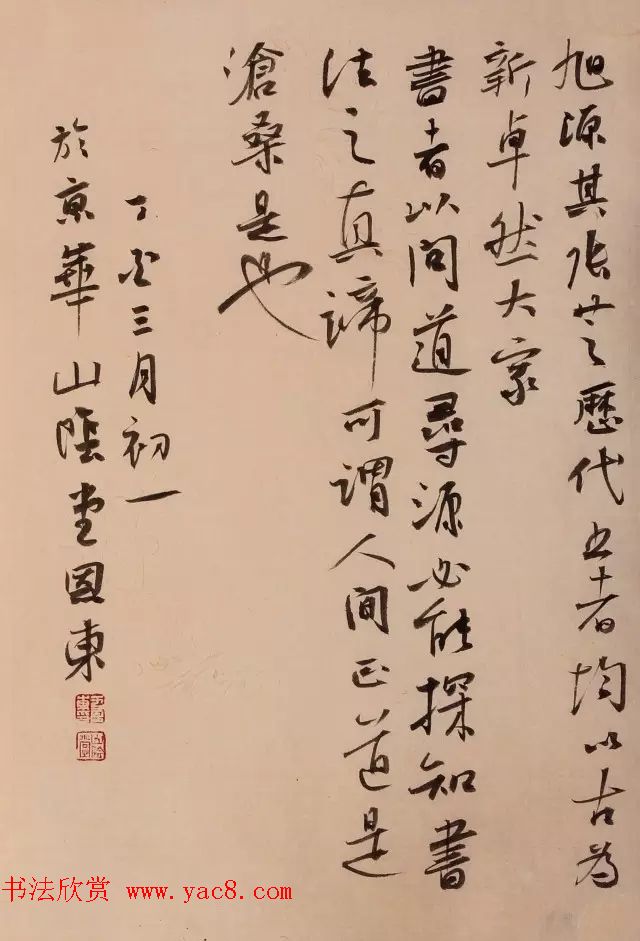 旭源其張芝歷代書者均以古為
新卓然大家
書者以問道尋源必能探知書
法之真諦可謂人間正道是
滄桑是也
丁酉三月初一
於京華山陰堂國東
书法欣赏 www.yac8.com